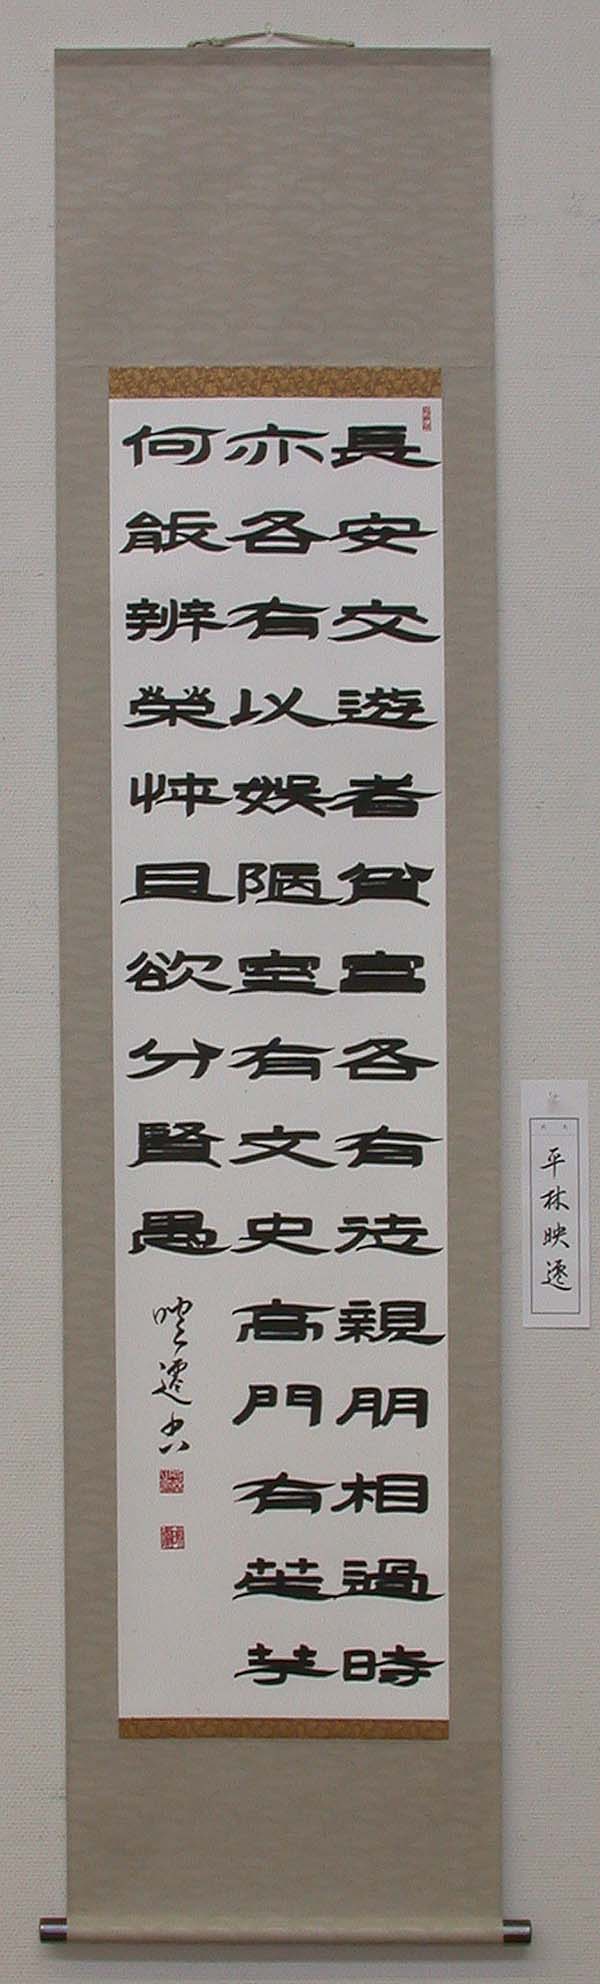 長安交遊者貧富各有徒親朋相過時
亦各有以娛陋室有文史高門有笙竽
何能辨榮悴且欲分賢愚
映遷
平林映遷